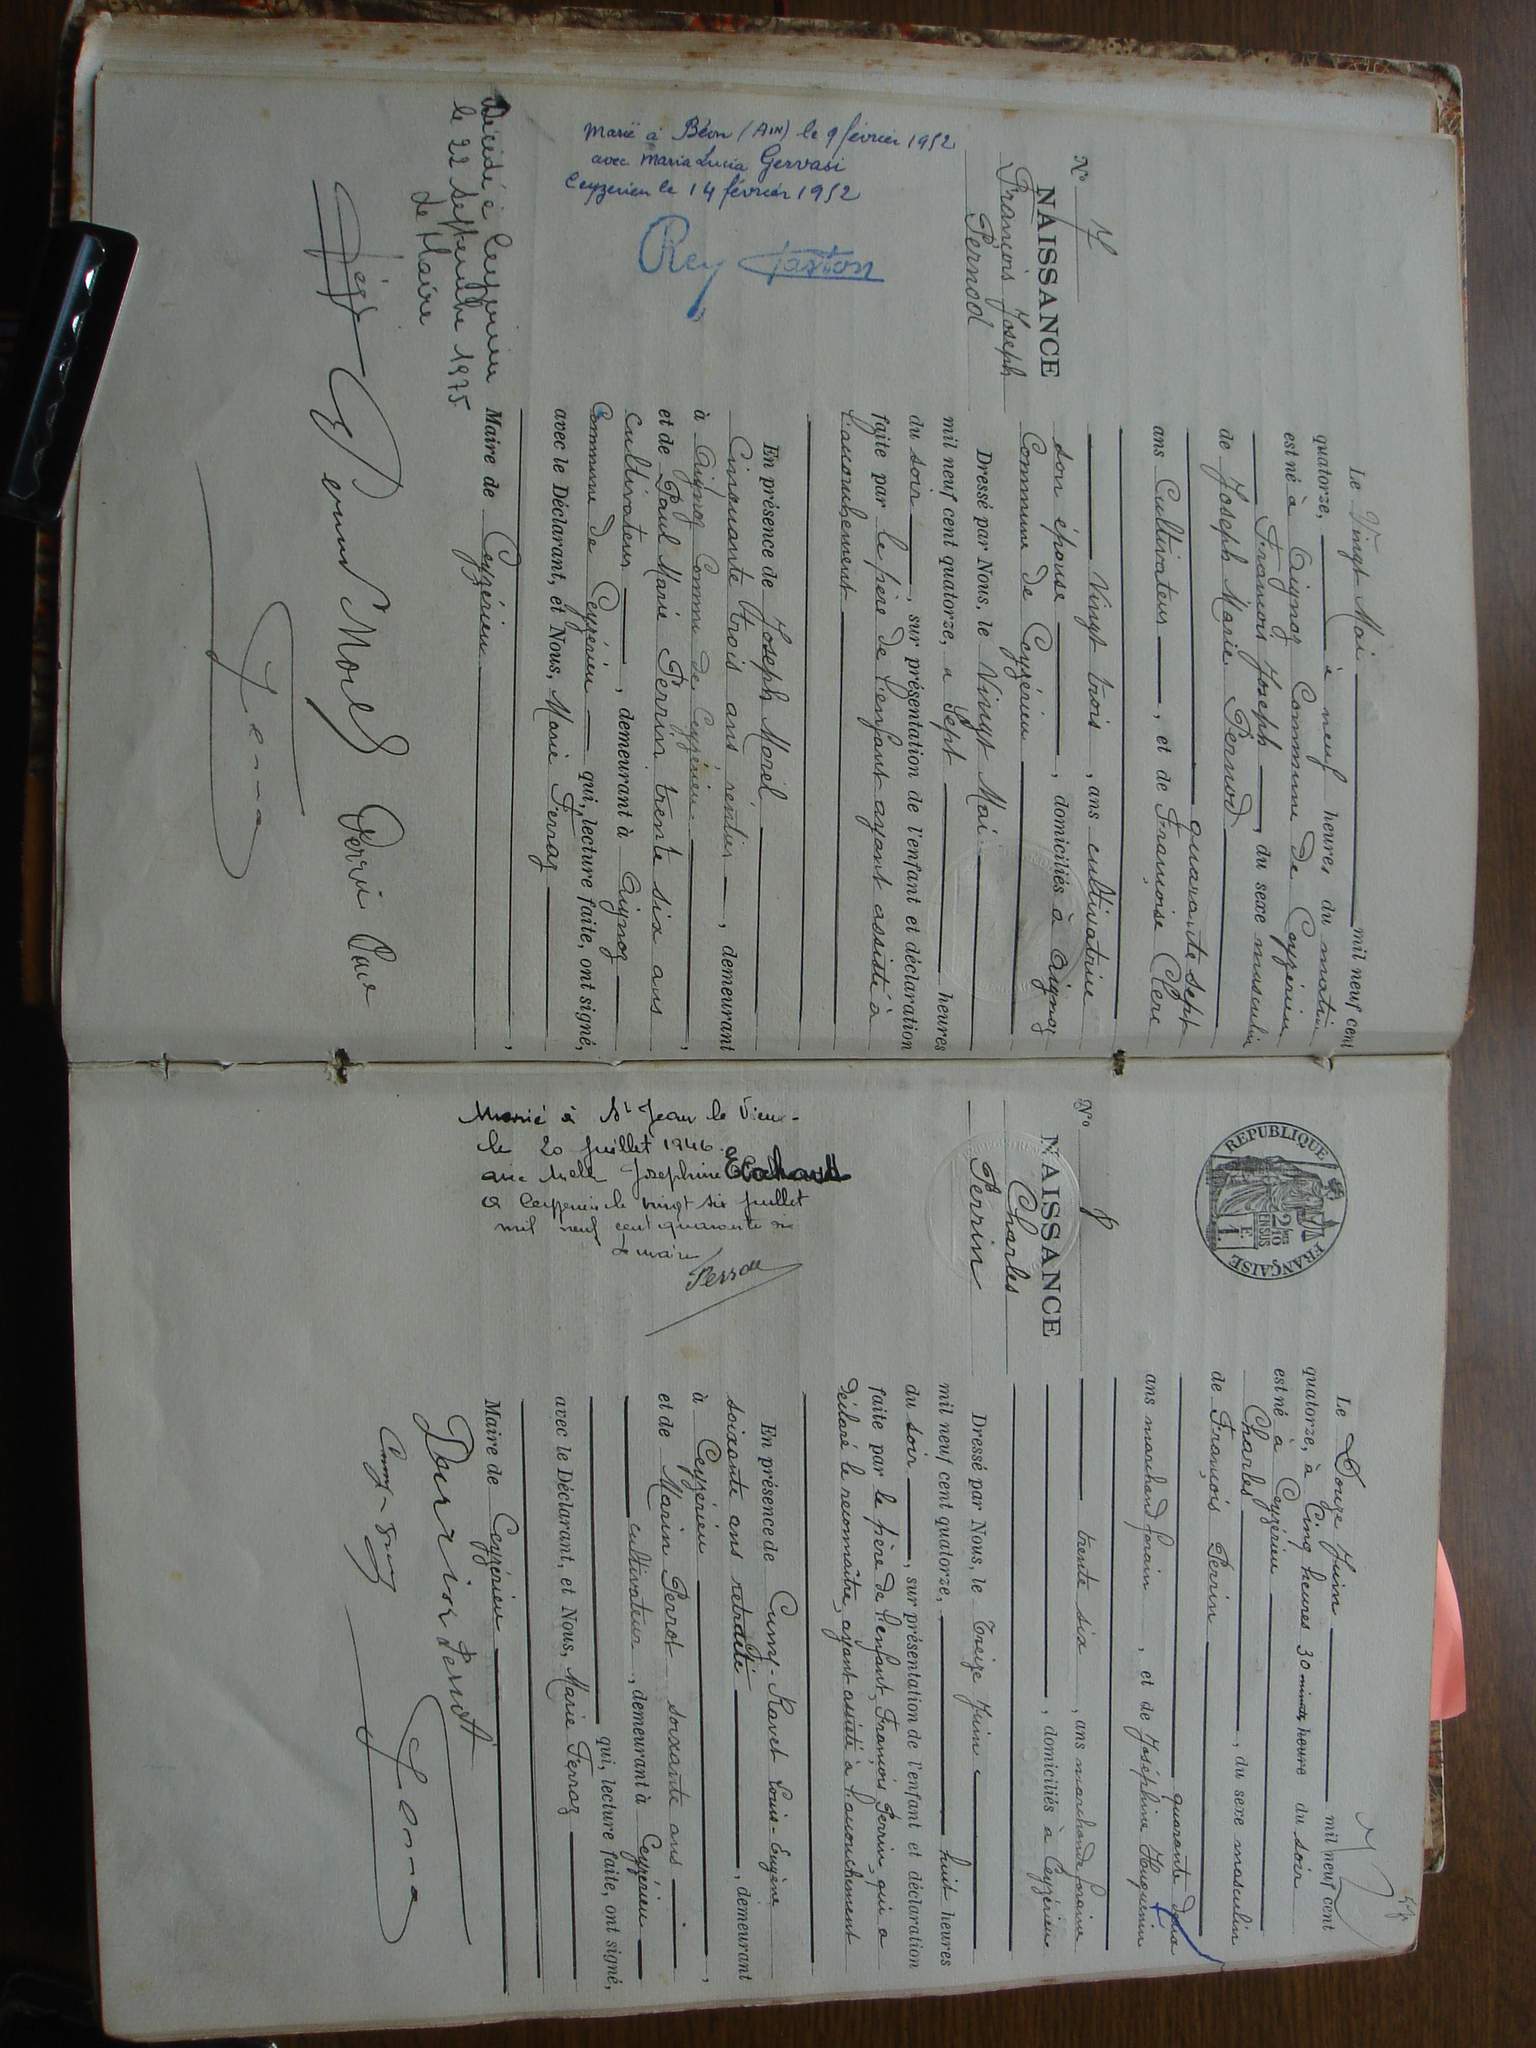 N° 7
NAISSANCE
François Joseph
Pernod
Marié à Béon (Ain) le 9 février 1952
avec Maria Lucia Gervasi
Ceyzérieu le 14 février 1952
Rey Gaston
Décédé à Ceyzérieu
le 22 Septembre 1975
Le Maire
Le Vingt Mai mil neuf cent
quatorze, à neuf heures, du matin
est né à Aignoz Commune de Ceyzérieu
François Joseph, du sexe masculin
de Joseph Marie Pernod
quarante sept
ans Cultivateur, et de Françoise Clerc
Vingt trois, ans cultivatrice
son épouse, domiciliés à Aignoz
Commune de Ceyzérieu
Dressé par Nous, le Vingt Mai
mil neuf cent quatorze, a Sept heures
du soir, sur présentation de l'enfant et déclaration
faite par le père de l'enfant ayant assisté à
l'accouchement
En présence de Joseph Morel
Cinquante trois ans rentier, demeurant
à Aignoz Commune de Ceyzérieu,
et de Paul Marie Perrin trente six ans
cultivateur, demeurant à Aignoz
Commune de Ceyzérieu qui, lecture faite, ont signé,
avec le Déclarant, et Nous, Marie Ferraz
Maire de Ceyzérieu,
Pernod Morel Perrin Paul
REPUBLIQUE FRANÇAISE
2/10
EN SUS
N° 8
NAISSANCE
Charles
Perrin
Marié à St Jean le Vieux
le 20 juillet 1946
avec Melle Joséphine
à Ceyzérieu le vingt six juillet
mil neuf cent quarante six
Le maire
Le Douze Juin mil neuf cent
quatorze, à Cinq heures 30 minutes heure du soir
est né à Ceyzérieu
Charles, du sexe masculin
de François Perrin
quarante deux
ans marchand forain, et de Joséphine Huguenin
trente six, ans marchande foraine
, domiciliés à Ceyzérieu
Dressé par Nous, le Treize Juin
mil neuf cent quatorze, huit heures
du soir, sur présentation de l'enfant et déclaration
faite par le père de l'enfant, François Perrin, qui a
déclaré le reconnaître, ayant assisté à l'accouchement
En présence de Cuny-Ravet Louis-Eugène
soixante ans retraité, demeurant
à Ceyzérieu,
et de Marin Perrot soixante ans
cultivateur, demeurant à Ceyzérieu
qui, lecture faite, ont signé,
avec le Déclarant, et Nous, Marie Ferraz
Maire de Ceyzérieu